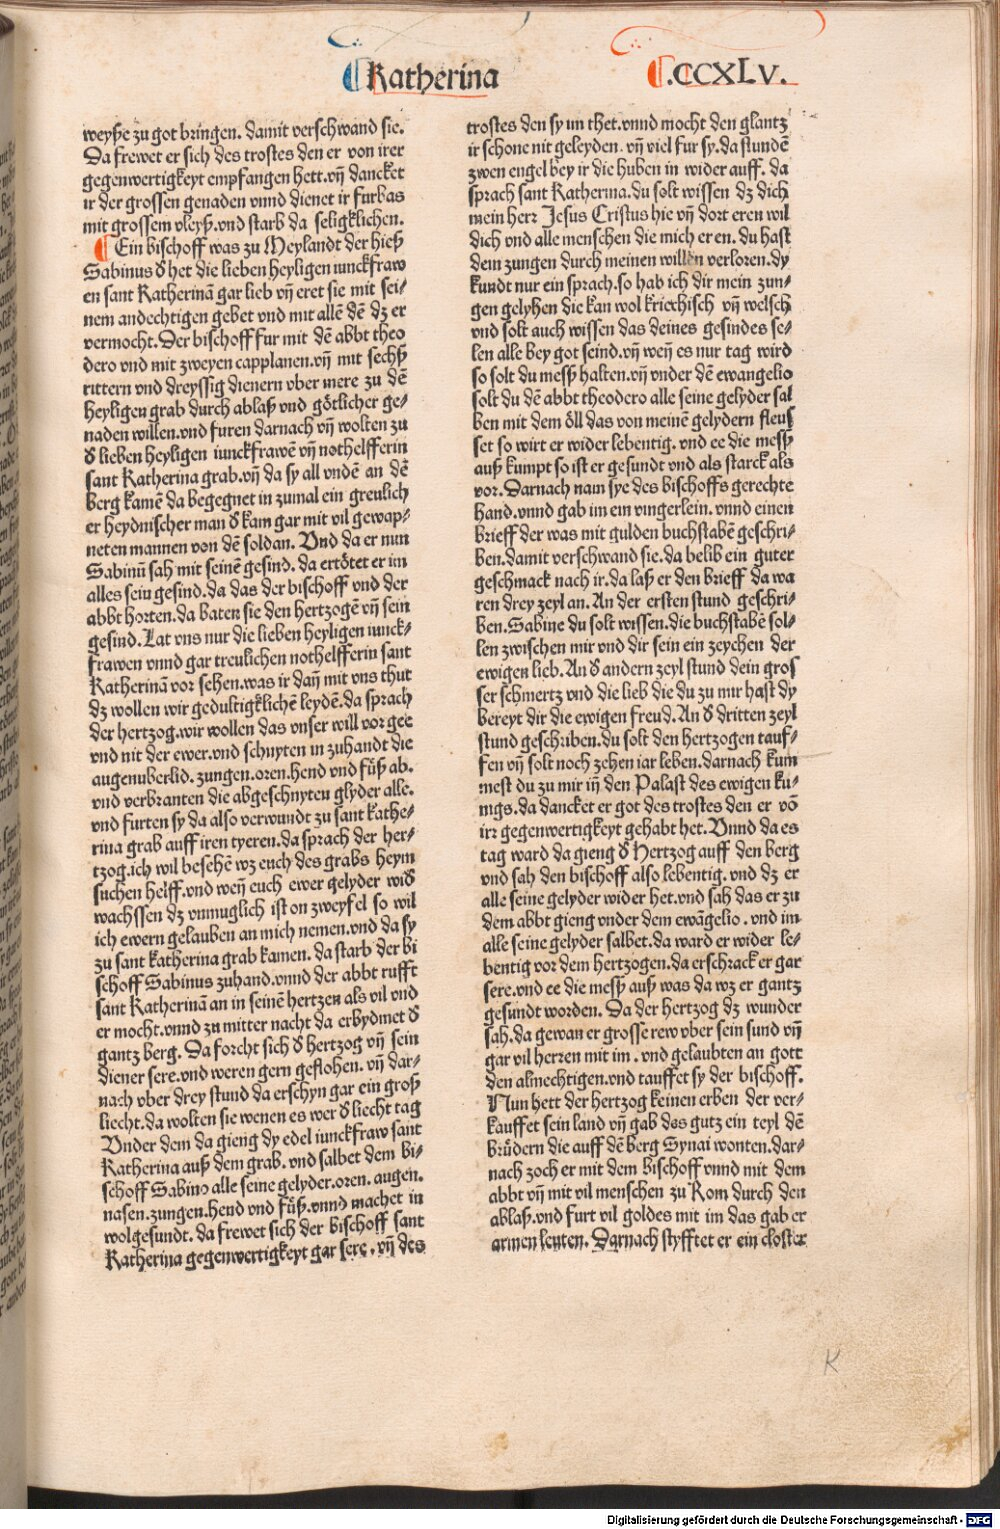 Katherina
.CCXLV.
weyße zu got bringen. damit verschwand sie.
Da frewet er sich des trostes den er von irer
gegenwertigkeyt empfangen hett.vñ dancket
ir der grossen genaden vnnd dienet ir furbas
mit grossem vleyß.vnd starb da seligklichen.
Ein bischoff was zu Meylandt der hieß
Sabinus d het die lieben heyligen iunckfraw
en sant Katherinā gar lieb vñ eret sie mit sei-
nem andechtigen gebet vnd mit allē dē dz er
vermocht. Der bischoff fur mit dē abbt theo
dero vnd mit zweyen capplanen.vñ mit sechß
rittern vnd dreyssig dienern vber mere zu dē
heyligen grab durch ablaß vnd götlicher ge-
naden willen.vnd furen darnach vñ wolten zu
d lieben heyligen iunckfrawē vñ nothelfferin
sant Katherina grab.vñ da sy all vndē an dē
berg kamē da begegnet in zumal ein greulich
er heydnischer man d kam gar mit vil gewap-
neten mannen von dē soldan. Vnd da er nun
Sabinū sah mit seinē gesind. da ertötet er im
alles sein gesind. da das der bischoff vnd der
abbt horten. da baten sie den hertzogē vñ sein
gesind. Lat vns nur die lieben heyligen iunck-
frawen vnnd gar treulichen nothelfferin sant
Katherinā vor sehen.was ir dañ mit vns thut
dz wollen wir gedultigklichē leydē. da sprach
der hertzog.wir wollen das vnser will vor gee
vnd nit der ewer.vnd schnyten in zuhandt die
augenuberlid. zungen.oren.hend vnd füß ab.
vnd verbranten die abgeschnyten glyder alle.
vnd furten sy da also verwundt zu sant kathe-
rina grab auff iren tyeren.da sprach der her-
tzog.ich wil besehē wz euch des grabs heym
suchen helff.vnd weñ euch ewer gelyder wid
wachssen dz vnmuglich ist on zweyfel so wil
ich ewern gelauben an mich nemen.vnd da sy
zu sant katherina grab kamen. da starb der bi
schoff Sabinus zuhand.vnnd der abbt rufft
sant Katherinā an in seinē hertzen als vil vnd
er mocht.vnnd zu mitter nacht da erbydmet d
gantz berg. Da forcht sich d hertzog vñ sein
diener sere.vnd weren gern geflohen. vñ dar-
nach vber drey stund da erschyn gar ein groß
liecht.da wolten sie wenen es wer d liecht tag
Vnder dem da gieng dy edel iunckfraw sant
Katherina auß dem grab. vnd salbet dem bi-
schoff Sabino alle seine gelyder.oren. augen.
nasen.zungen.hend vnd füß.vnnd machet in
wolgesundt. da frewet sich der bischoff sant
Katherina gegenwertigkeyt gar sere. vñ des
trostes den sy im thet.vnnd mocht den glantz
ir schone nit geleyden. vñ viel fur sy.da stundē
zwen engel bey ir die huben in wider auff. da
sprach sant Katherina.du solt wissen dz dich
mein herr Jesus Cristus hie vñ dort eren wil
dich vnd alle menschen die mich eren. du hast
dein zungen durch meinen willen verloren.dy
kundt nur ein sprach.so hab ich dir mein zun-
gen gelyhen die kan wol kriechisch vñ welsch
vnd solt auch wissen das deines gesindes se-
len alle bey got seind.vñ weñ es nur tag wird
so solt du mesß halten.vñ vnder dē ewangelio
solt du dē abbt theodero alle seine gelyder sal
ben mit dem öll das von meinē gelydern fleus
set so wirt er wider lebentig. vnd ee die mesß
auß kumpt so ist er gesundt vnd als starck als
vor. Darnach nam sye des bischoffs gerechte
hand.vnnd gab im ein vingerlein. vnnd einen
brieff der was mit gulden buchstabē geschri-
ben.damit verschwand sie.da belib ein guter
geschmack nach ir.da laß er den brieff da wa
ren drey zeyl an. An der ersten stund geschri-
ben. Sabine du solt wissen.die buchstabē sol-
len zwischen mir vnd dir sein ein zeychen der
ewigen lieb. An d andern zeyl stund dein gros
ser schmertz vnd die lieb die du zu mir hast dy
bereyt dir die ewigen freud. An d dritten zeyl
stund geschriben.du solt den hertzogen tauf-
fen vñ solt noch zehen iar leben.darnach kum
mest du zu mir iñ den Palast des ewigen ku-
nigs.da dancket er got des trostes den er vō
irr gegenwertigkeyt gehabt het. Vnnd da es
tag ward da gieng d Hertzog auff den berg
vnd sah den bischoff also lebentig. vnd dz er
alle seine gelyder wider het.vnd sah das er zu
dem abbt gieng vnder dem ewāgelio. vnd im
alle seine gelyder salbet.da ward er wider le-
bentig vor dem hertzogen.da erschrack er gar
sere.vnd ee die mesß auß was da wz er gantz
gesundt worden. Da der hertzog dz wunder
sah.da gewan er grosse rew vber sein sund vñ
gar vil herren mit im. vnd gelaubten an gott
den almechtigen.vnd tauffet sy der bischoff.
Nun hett der hertzog keinen erben der ver-
kauffet sein land vñ gab des gutz ein teyl dē
brüdern die auff dē berg Synai wonten.dar-
nach zoch er mit dem bischoff vnnd mit dem
abbt vñ mit vil menschen zu Rom durch den
ablaß.vnd furt vil goldes mit im das gab er
armen leuten. Darnach styfftet er ein closter
K
Digitalisierung gefördert durch die Deutsche Forschungsgemeinschaft - DFG